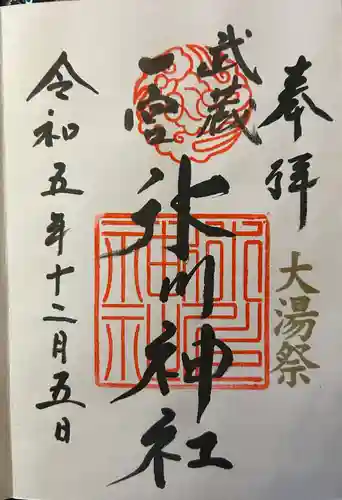 奉拝
大湯祭
武蔵
一宮
氷川神社
令和五年十二月五日